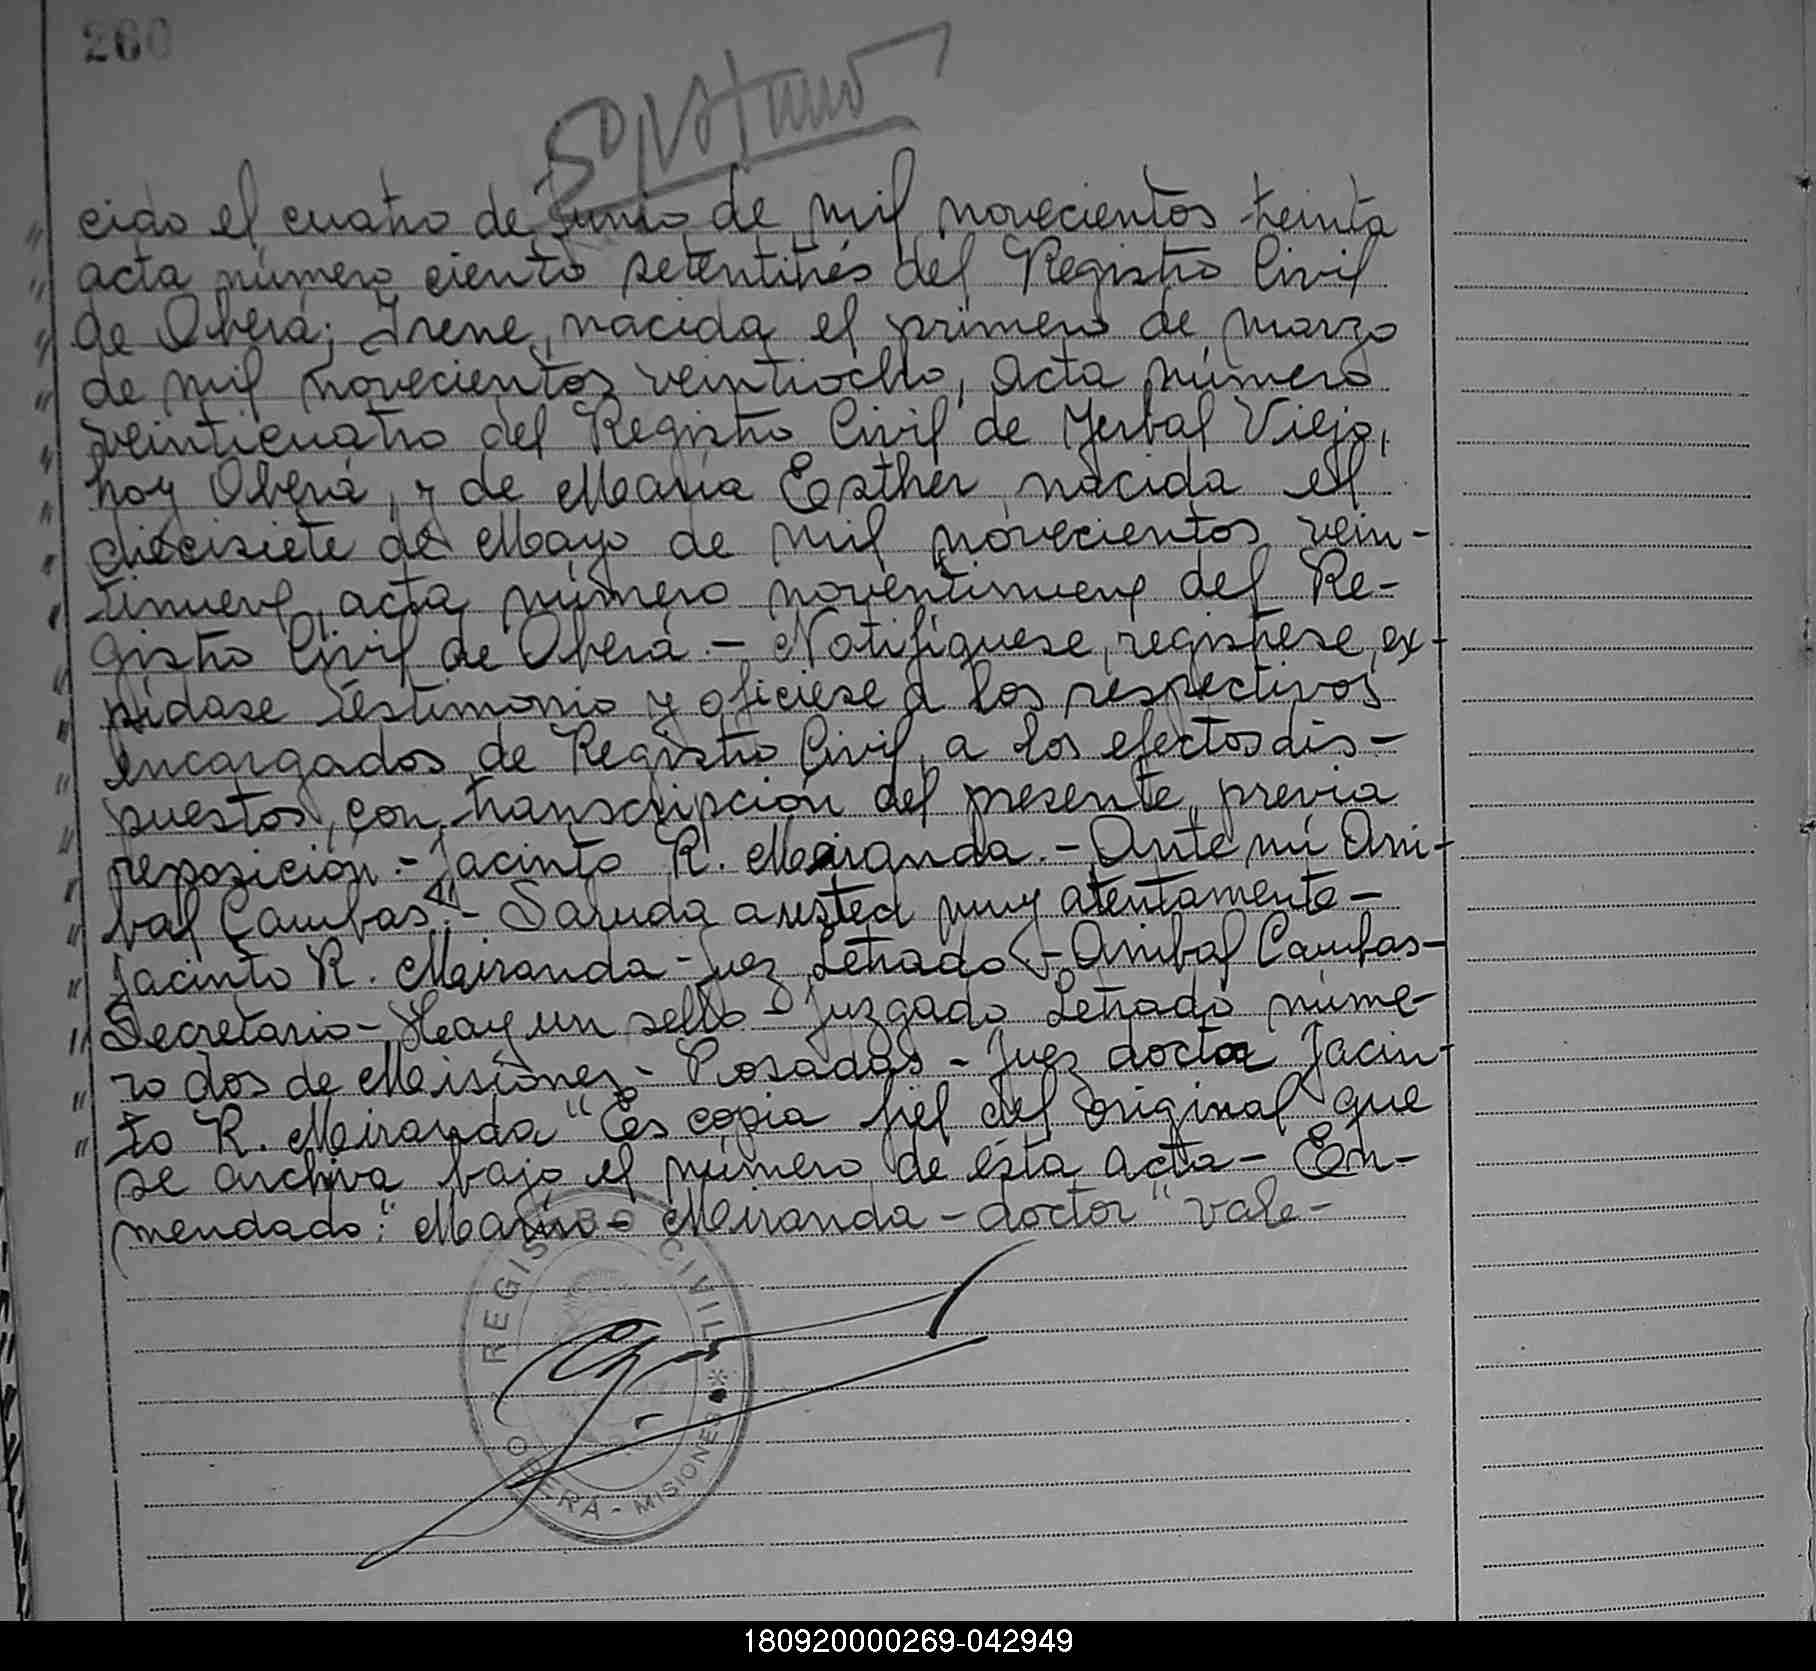 260
" cido el cuatro de Junio de mil novecientos treinta
" acta número ciento setentitrés del Registro Civil
" de Oberá; Irene, nacida el primero de marzo
" de mil novecientos veintiocho, acta número
" veinticuatro del Registro Civil de Yerbal Viejo,
" hoy Oberá, y de María Esther, nacida el
" diecisiete de Mayo de mil novecientos vein-
" tinueve, acta número noventinueve del Re-
" gistro Civil de Oberá.- Notifíquese, regístrese, ex-
" pídase testimonio y ofíciese a los respectivos
" encargados de Registro Civil, a los efectos dis-
" puestos, con transcripción del presente, previa
" reposición.- Jacinto R. Miranda.- Ante mí Aní-
" bal Cambas".- Saluda a usted muy atentamente-
" Jacinto R. Miranda - Juez Letrado - Anibal Cambas-
" Secretario - Hay un sello - Juzgado Letrado núme-
" ro dos de Misiones - Posadas - Juez doctor Jacin-
" to R. Miranda" Es copia fiel del original que
se archiva bajo el número de esta acta - En-
mendado: "Mario - Miranda - doctor" vale-
REGISTRO CIVIL
OBERÁ - MISIONES
180920000269-042949